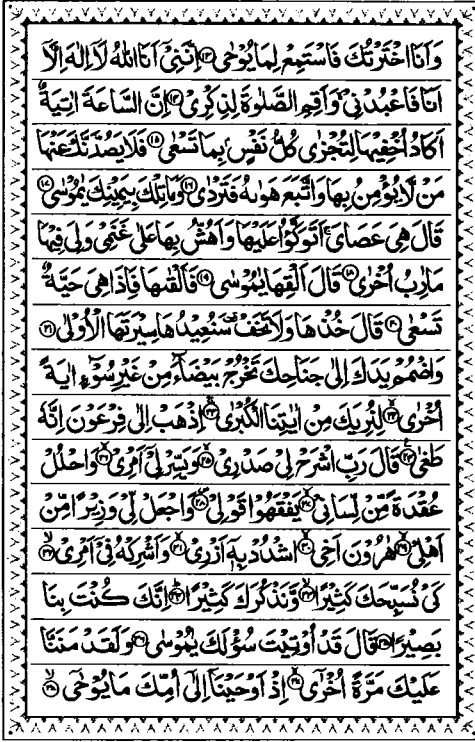 وَاَنَا اخْتَرْتُكَ فَاسْتَمِعْ لِمَا يُوْحٰى ﴿۱۳﴾ اِنَّنِيْۤ اَنَا اللّٰهُ لَاۤ اِلٰهَ اِلَّاۤ
اَنَا فَاعْبُدْنِيْ ۙ وَاَقِمِ الصَّلٰوةَ لِذِكْرِيْ ﴿۱۴﴾ اِنَّ السَّاعَةَ اٰتِيَةٌ
اَكَادُ اُخْفِيْهَا لِتُجْزٰى كُلُّ نَفْسٍۭ بِمَا تَسْعٰى ﴿۱۵﴾ فَلَا يَصُدَّنَّكَ عَنْهَا
مَنْ لَّا يُؤْمِنُ بِهَا وَاتَّبَعَ هَوٰىهُ فَتَرْدٰى ﴿۱۶﴾ وَمَا تِلْكَ بِيَمِيْنِكَ يٰمُوْسٰى ﴿۱۷﴾
قَالَ هِيَ عَصَايَ ۚ اَتَوَكَّؤُا عَلَيْهَا وَاَهُشُّ بِهَا عَلٰى غَنَمِيْ وَلِيَ فِيْهَا
مَاٰرِبُ اُخْرٰى ﴿۱۸﴾ قَالَ اَلْقِهَا يٰمُوْسٰى ﴿۱۹﴾ فَاَلْقٰىهَا فَاِذَا هِيَ حَيَّةٌ
تَسْعٰى ﴿۲۰﴾ قَالَ خُذْهَا وَلَا تَخَفْ ۥ سَنُعِيْدُهَا سِيْرَتَهَا الْاُوْلٰى ﴿۲۱﴾
وَاضْمُمْ يَدَكَ اِلٰى جَنَاحِكَ تَخْرُجْ بَيْضَآءَ مِنْ غَيْرِ سُوْٓءٍ اٰيَةً
اُخْرٰى ﴿۲۲﴾ لِنُرِيَكَ مِنْ اٰيٰتِنَا الْكُبْرٰى ﴿۲۳﴾ اِذْهَبْ اِلٰى فِرْعَوْنَ اِنَّهٗ
طَغٰى ﴿۲۴﴾ قَالَ رَبِّ اشْرَحْ لِيْ صَدْرِيْ ﴿۲۵﴾ وَيَسِّرْ لِيْۤ اَمْرِيْ ﴿۲۶﴾ وَاحْلُلْ
عُقْدَةً مِّنْ لِّسَانِيْ ﴿۲۷﴾ يَفْقَهُوْا قَوْلِيْ ﴿۲۸﴾ وَاجْعَلْ لِّيْ وَزِيْرًا مِّنْ
اَهْلِيْ ﴿۲۹﴾ هٰرُوْنَ اَخِي ﴿۳۰﴾ اشْدُدْ بِهٖۤ اَزْرِيْ ﴿۳۱﴾ وَاَشْرِكْهُ فِيْۤ اَمْرِيْ ﴿۳۲﴾
كَيْ نُسَبِّحَكَ كَثِيْرًا ﴿۳۳﴾ وَّنَذْكُرَكَ كَثِيْرًا ﴿۳۴﴾ اِنَّكَ كُنْتَ بِنَا
بَصِيْرًا ﴿۳۵﴾ قَالَ قَدْ اُوْتِيْتَ سُؤْلَكَ يٰمُوْسٰى ﴿۳۶﴾ وَلَقَدْ مَنَنَّا
عَلَيْكَ مَرَّةً اُخْرٰٓى ﴿۳۷﴾ اِذْ اَوْحَيْنَاۤ اِلٰۤى اُمِّكَ مَا يُوْحٰٓى ﴿۳۸﴾